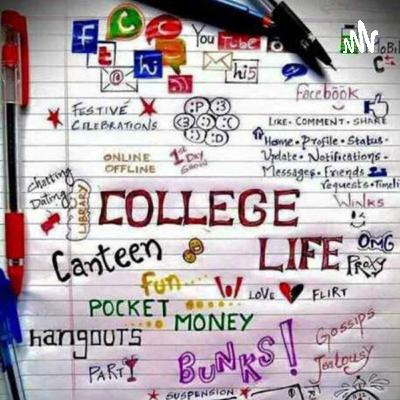 f t
YouTube
hi
hi5
facebook
LIKE · COMMENT · SHARE
Home · Profile · Status ·
Update · Notifications ·
Messages · Friends
requests · Timeli
FESTIVE
CELEBRATIONS
:P :3
:) :(
:) :D
ONLINE
OFFLINE
1st DAY
SHOW
Chatting
Dating
LIBRARY
COLLEGE
LIFE
Winks
OMG
Proxy
Canteen
fun....
LOVE FLIRT
POCKET
MONEY
Hangouts
PARTY
BUNKS!
Gossips
Jealousy
SUSPENSION